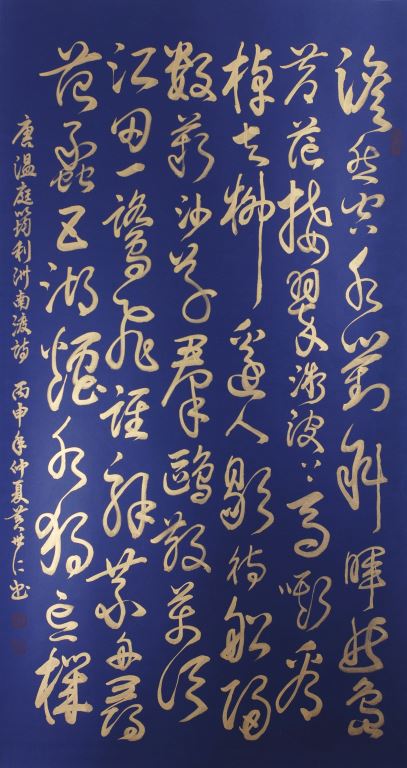 澹然空水對斜暉曲島
苍茫接翠微波上馬嘶看
棹去柳邊人歇待船歸
數叢沙草羣鷗散萬頃
江田一鷺飛誰解乘舟尋
范蠡五湖煙水獨忘機
唐温庭筠利洲南渡詩 丙申年仲夏黄世仁书